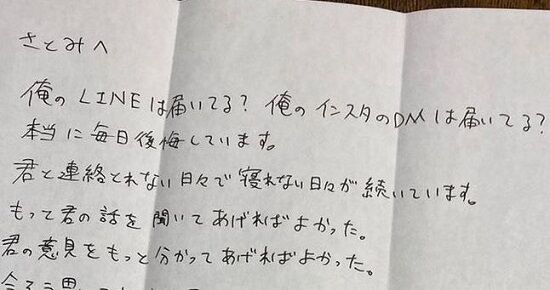 さとみへ
俺のLINEは届いてる？俺のインスタのDMは届いてる？
本当に毎日後悔しています。
君と連絡とれない日々で寝れない日々が続いています。
もって君の話を聞いてあげればよかった。
君の意見をもっと分かってあげればよかった。